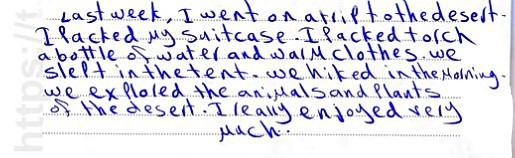 Last week, I went on a trip to the desert.
I Packed my suitcase. I Packed torch
a bottle of water and warm clothes. we
slept in the tent. we hiked in the Morning.
we exploled the animals and Plants
of the desert. I really enjoyed very
much.
https://t